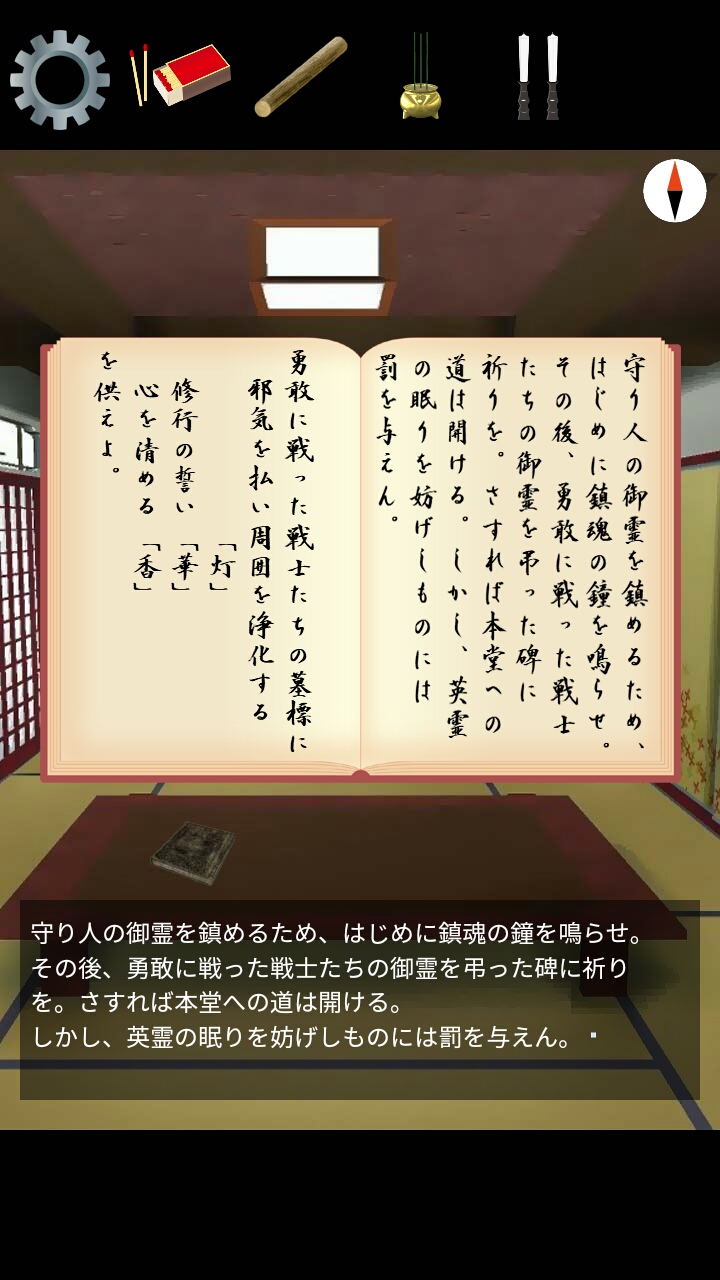 守り人の御霊を鎮めるため、
はじめに鎮魂の鐘を鳴らせ。
その後、勇敢に戦った戦士
たちの御霊を弔った碑に
祈りを。さすれば本堂への
道は開ける。しかし、英霊
の眠りを妨げしものには
罰を与えん。
勇敢に戦った戦士たちの墓標に
邪気を払い周囲を浄化する
「灯」
修行の誓い「華」
心を清める「香」
を供えよ。
守り人の御霊を鎮めるため、はじめに鎮魂の鐘を鳴らせ。
その後、勇敢に戦った戦士たちの御霊を弔った碑に祈り
を。さすれば本堂への道は開ける。
しかし、英霊の眠りを妨げしものには罰を与えん。